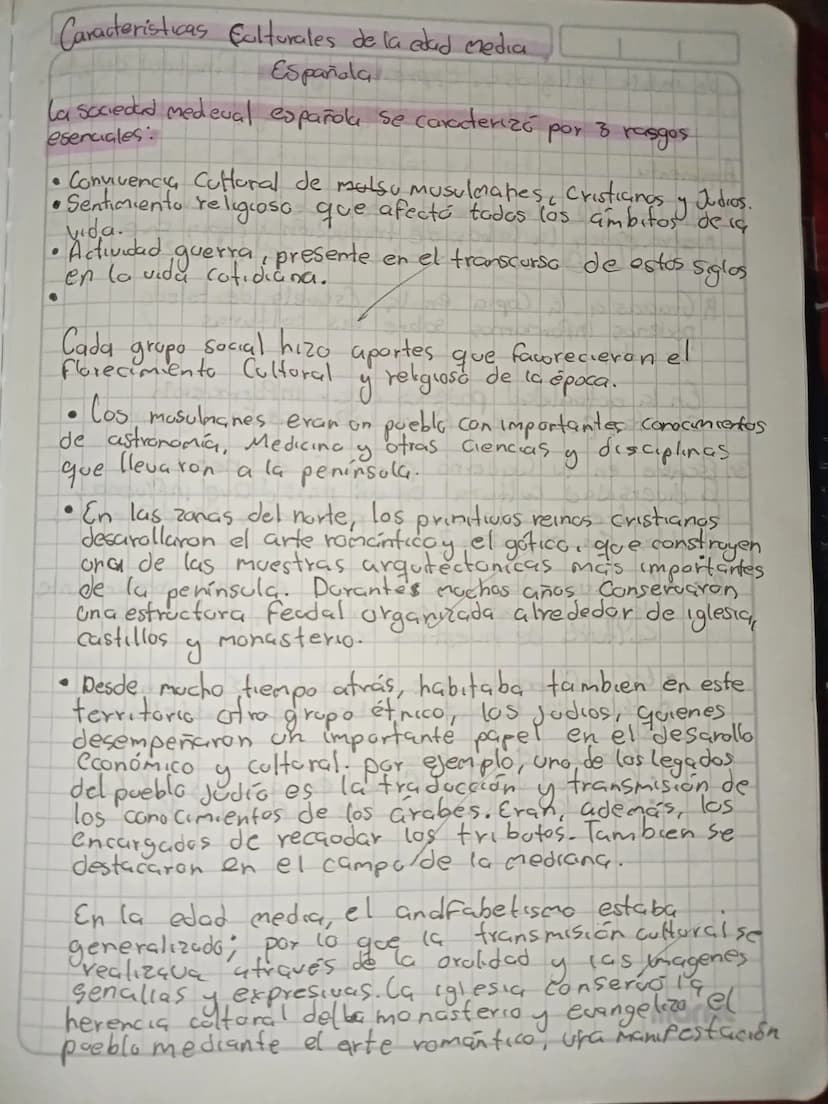 Caracteristicas Culturales de la edad media
Española
La sociedad medeval española se caracterizó por 3 rasgos
esenciales:
• Convivencia Cultural de musulmanes, Cristianos y Judios.
• Sentimiento religioso que afectó todos los ámbitos de la
vida.
• Actividad guerra, presente en el transcurso de estos siglos
en la vida cotidiana.
•
Cada grupo social hizo aportes que favorecieron el
florecimiento Cultural y religioso de la época.
• Los musulmanes eran un pueblo con importantes conocimientos
de astronomía, Medicina y otras ciencias y disciplinas
que llevaron a la península.
• En las zonas del norte, los primitivos reinos cristianos
desarollaron el arte romántico y el gótico, que construyen
una de las muestras arquitectonicas más importantes
de la península. Durantes muchos años Conservaron
una estructura feudal organizada alrededor de iglesia,
castillos y monasterio.
• Desde mucho tiempo atrás, habitaba tambien en este
territorio otro grupo étnico, los judios, quienes
desempeñaron un importante papel en el desarollo
económico y cultural. por ejemplo, uno de los legados
del pueblo judío es la traducción y transmisión de
los conocimientos de los árabes. Eran, además, los
encargados de recaudar los tributos. Tambien se
destacaron en el campo de la mediana.
En la edad media, el andfabetismo estaba
generalizado; por lo que la transmisión cultural se
realizava através de la oralidad y las imagenes
senallas y expresivas. La iglesia conservó la
herencia cultoral del monasterio y evangelizo el
pueblo mediante el arte romántico, una manifestación